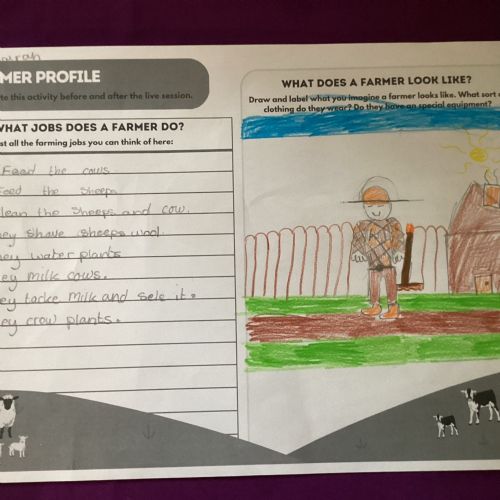 MER PROFILE
te this activity before and after the live session.
WHAT JOBS DOES A FARMER DO?
st all the farming jobs you can think of here:
Feed the cows
eed the sheeps
lean the sheeps and cow.
hey shave sheeps wool.
hey water plants
ey milk cows.
ey tacke milk and sele it.
ey crow plants.
WHAT DOES A FARMER LOOK LIKE?
Draw and label what you imagine a farmer looks like. What sort
clothing do they wear? Do they have an special equipment?